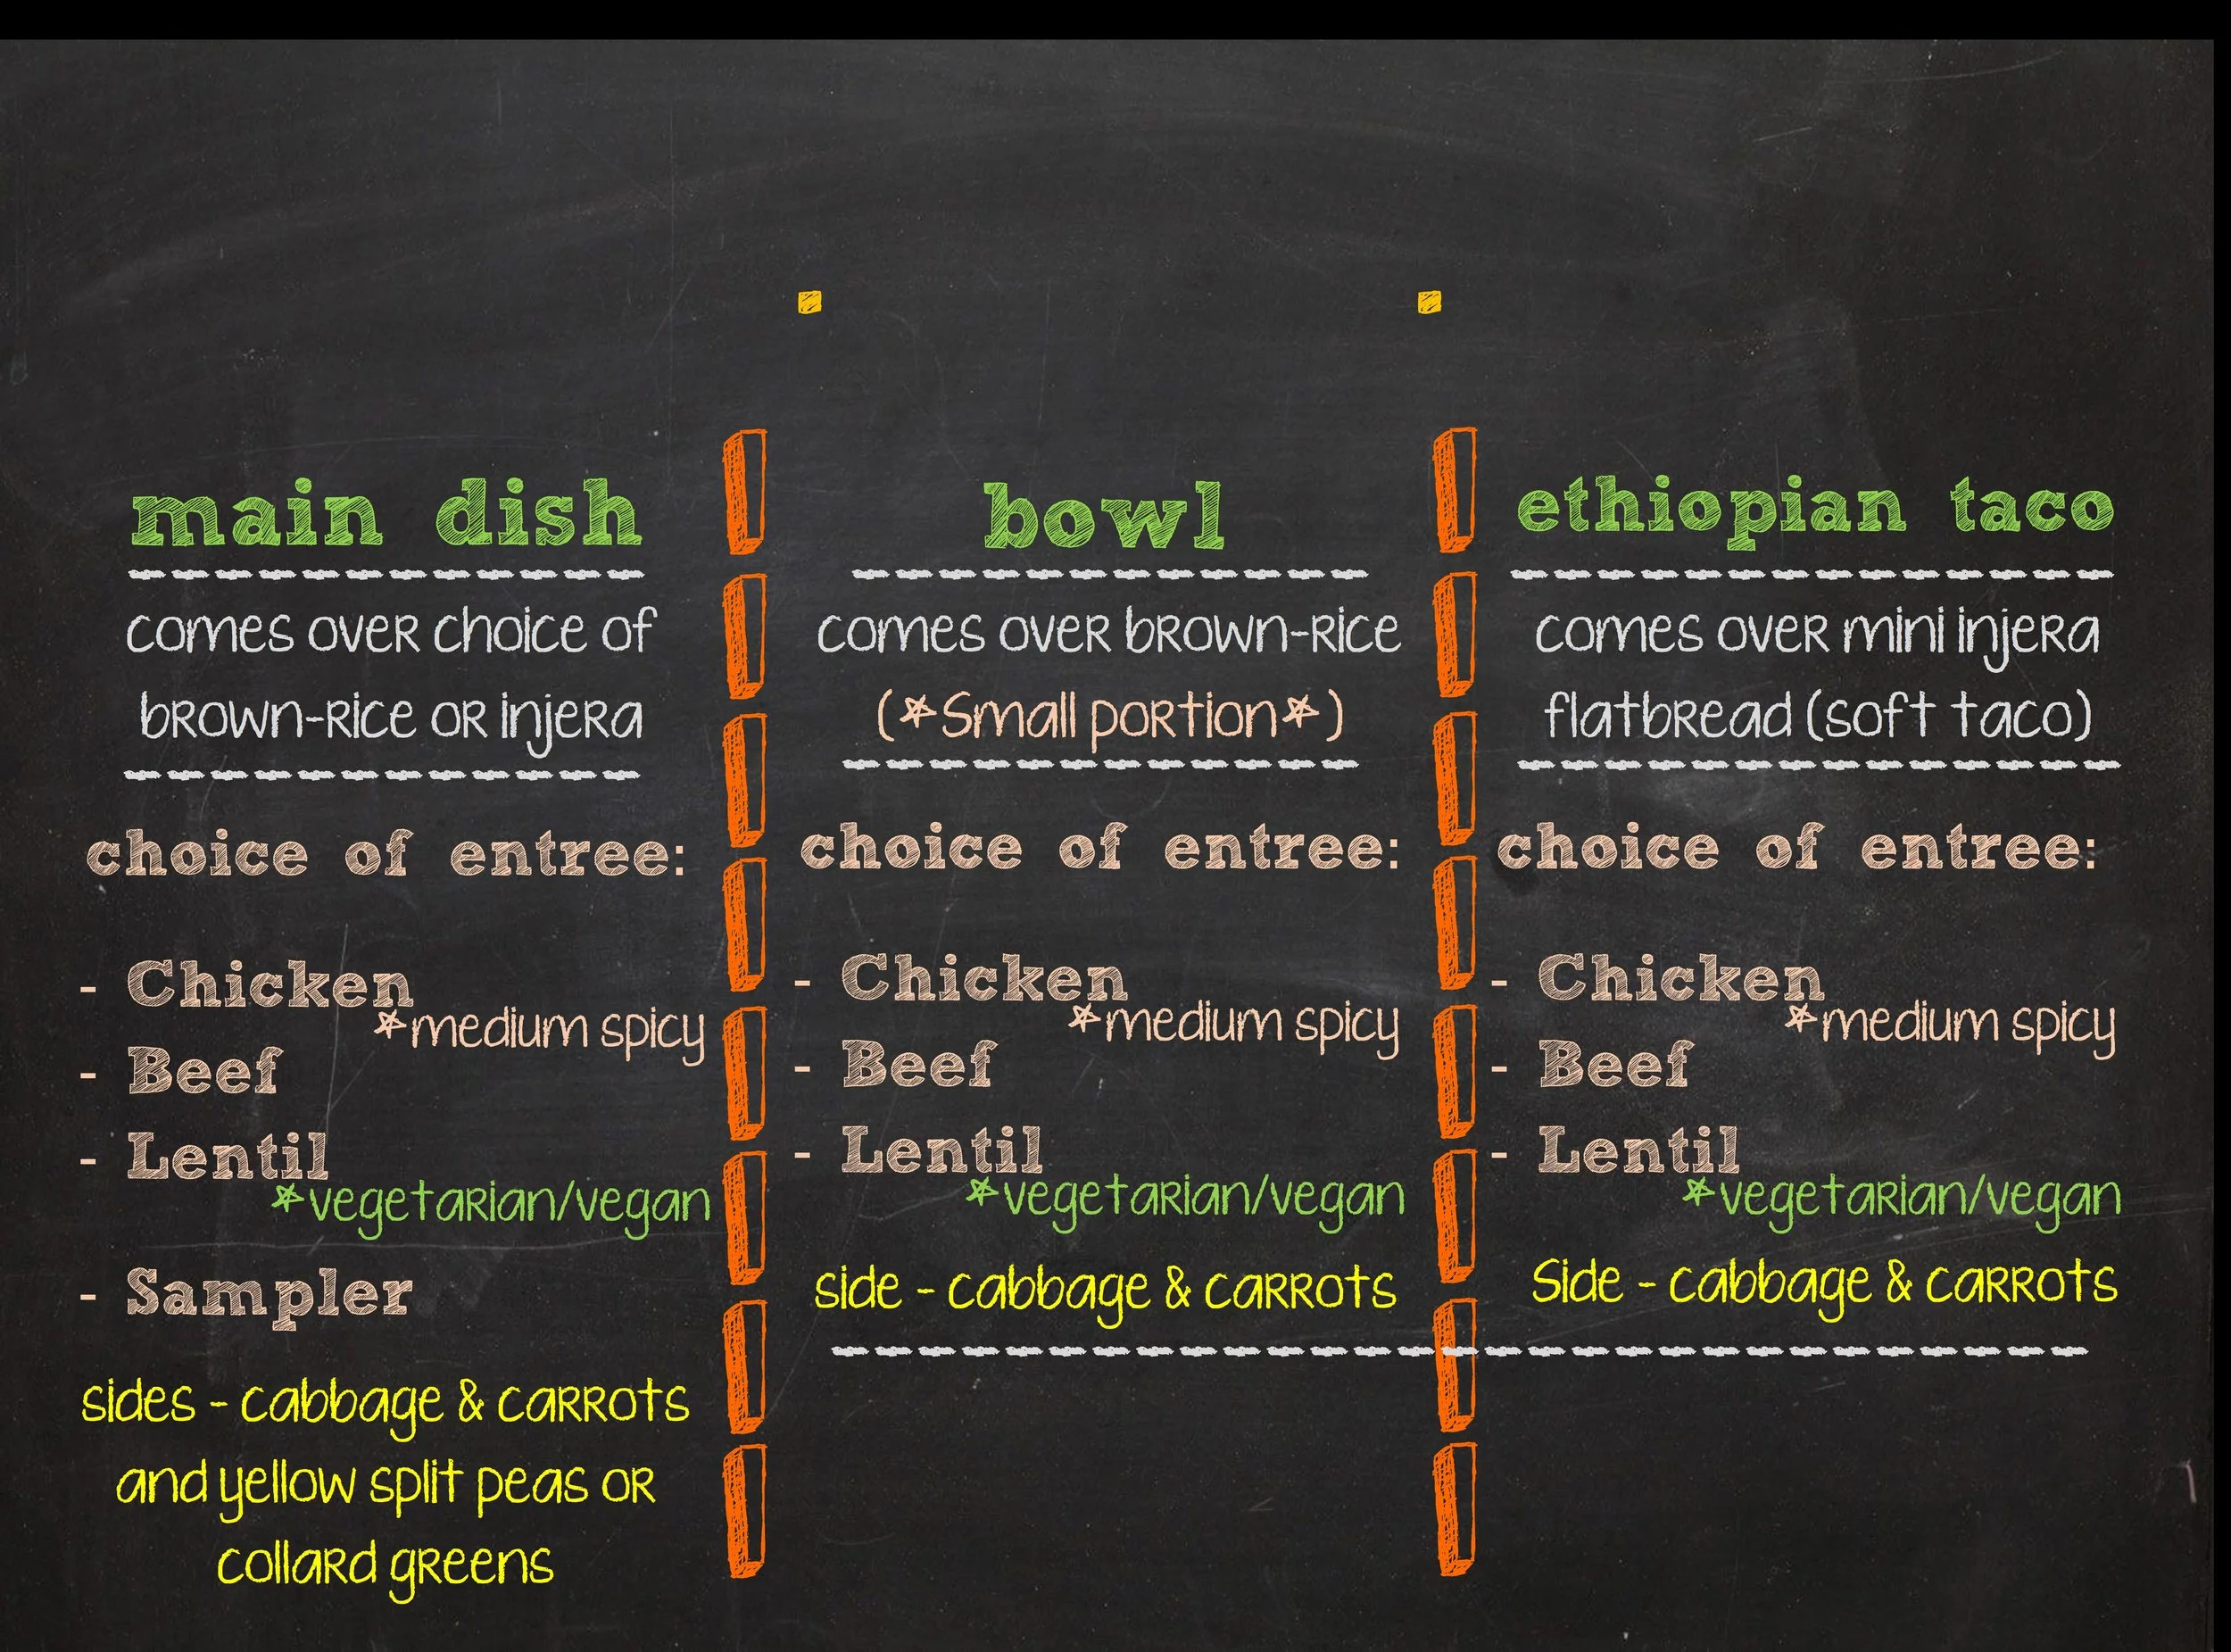 main dish
comes over choice of
brown-rice or injera
choice of entree:
- Chicken
*medium spicy
- Beef
- Lentil
*vegetarian/vegan
- Sampler
sides - cabbage & carrots
and yellow split peas or
collard greens
bowl
comes over brown-rice
(*Small portion*)
choice of entree:
- Chicken
*medium spicy
- Beef
- Lentil
*vegetarian/vegan
side - cabbage & carrots
ethiopian taco
comes over mini injera
flatbread (soft taco)
choice of entree:
- Chicken
*medium spicy
- Beef
- Lentil
*vegetarian/vegan
Side - cabbage & carrots